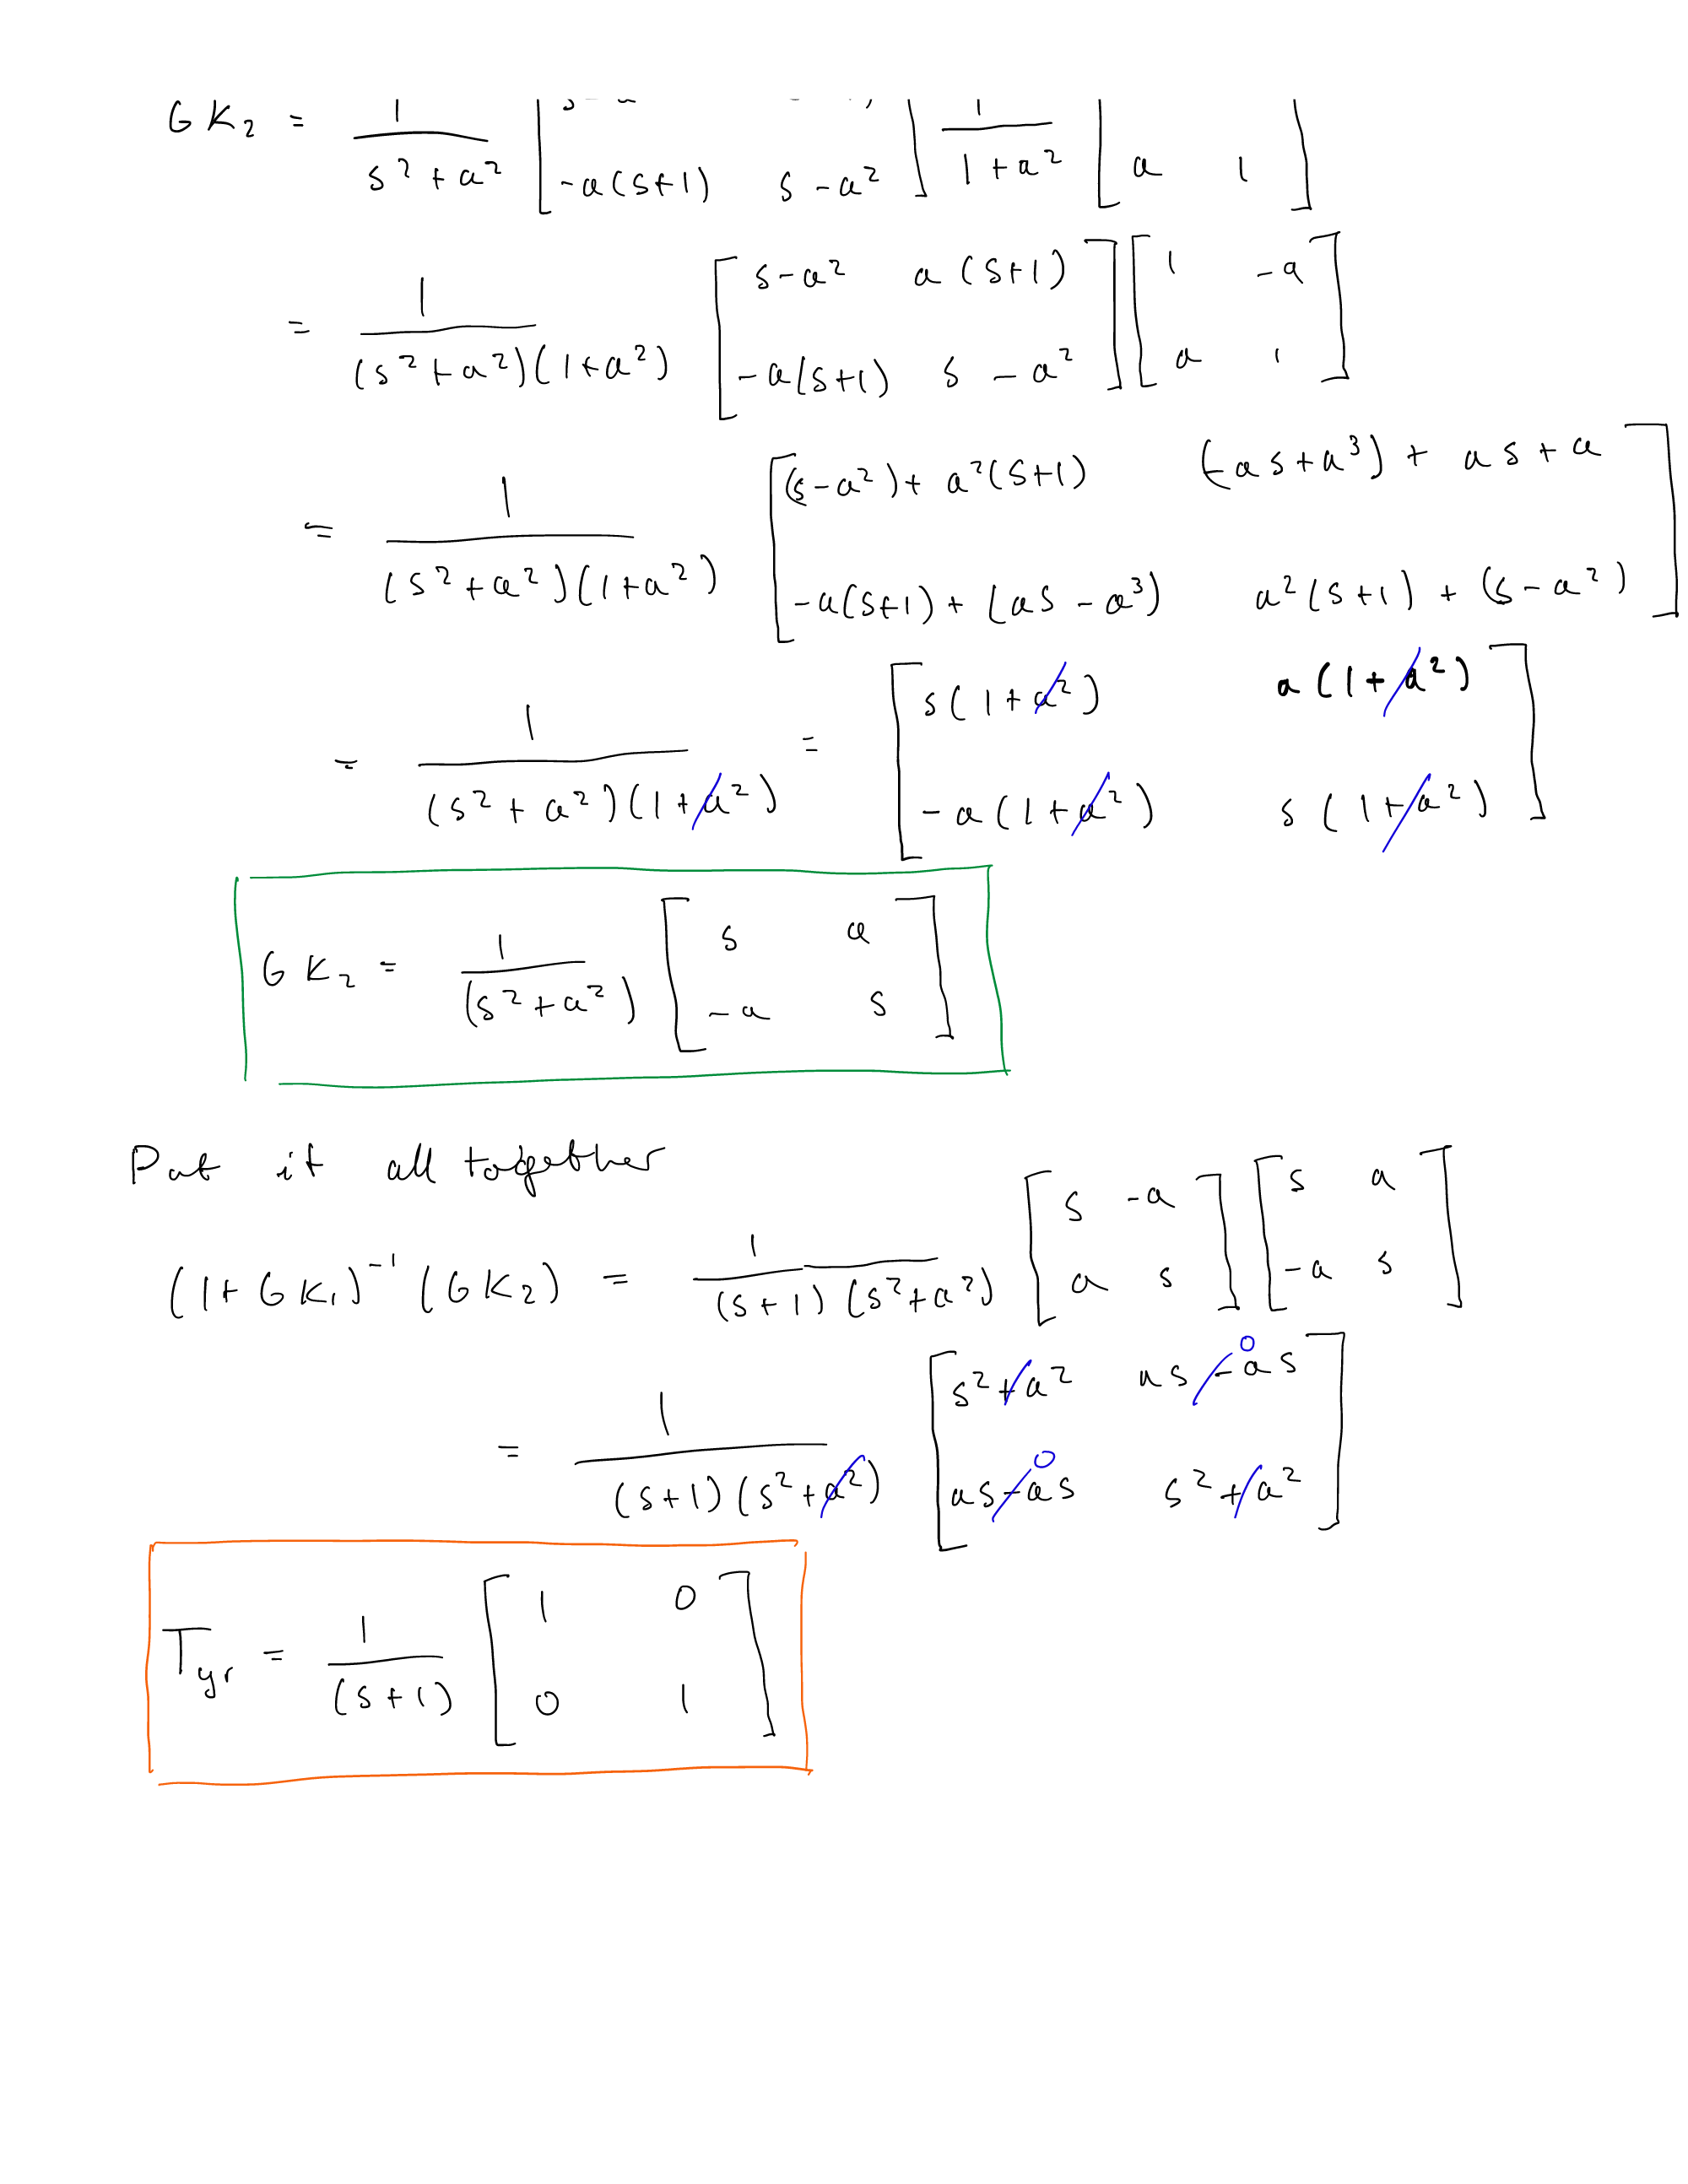 G K₂ = 1/(s² + a²) [ ; -a(s+1)  s - a² ] 1/(1 + a²) [ ; a  1 ]
= 1/((s² + a²)(1 + a²)) [ s - a²  a(s+1) ; -a(s+1)  s - a² ] [ 1  -a ; a  1 ]
= 1/((s² + a²)(1 + a²)) [ (s - a²) + a²(s+1)  (-as + a³) + as + a ; -a(s+1) + (as - a³)  a²(s+1) + (s - a²) ]
= 1/((s² + a²)(1 + a²)) = [ s(1 + a²)  a(1 + a²) ; -a(1 + a²)  s(1 + a²) ]
G K₂ = 1/(s² + a²) [ s  a ; -a  s ]
Put it all together
(1 + G K₁)⁻¹ (G K₂) = 1/((s + 1)(s² + a²)) [ s  -a ; a  s ] [ s  a ; -a  s ]
= 1/((s+1)(s² + a²)) [ s² + a²  as - as 0 ; as - as 0  s² + a² ]
Tyr = 1/(s+1) [ 1  0 ; 0  1 ]